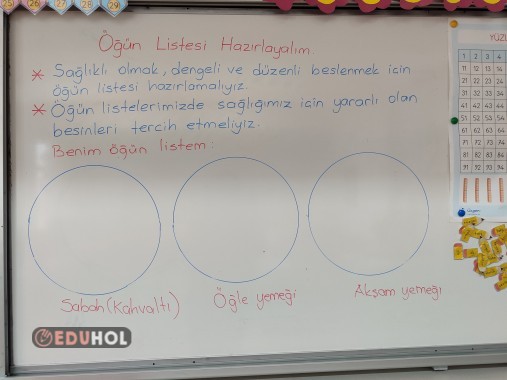 25 26 27 28 29
Öğün Listesi Hazırlayalım
* Sağlıklı olmak, dengeli ve düzenli beslenmek için
öğün listesi hazırlamalıyız.
* Öğün listelerimizde sağlığımız için yararlı olan
besinleri tercih etmeliyiz.
Benim öğün listem:
Sabah (Kahvaltı)
Öğle yemeği
Akşam yemeği
EDUHOL
1 2 3 4
11 12 13 14
21 22 23 24
31 32 33 34
41 42 43 44
51 52 53 54
61 62 63 64
71 72 73 74
81 82 83 84
91 92 93 94